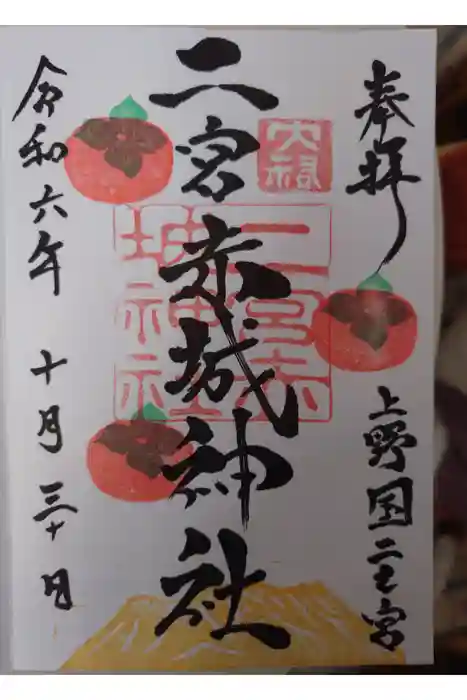 奉拝
上野国二之宮
二宮赤城神社
二宮赤
城神社
令和六年 十月三十日